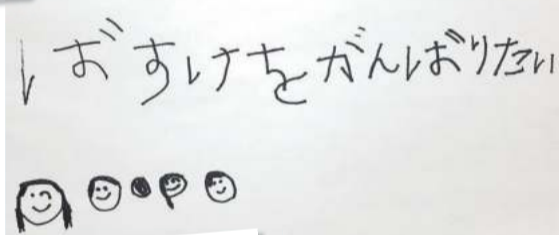 ばすけをがんばりたい